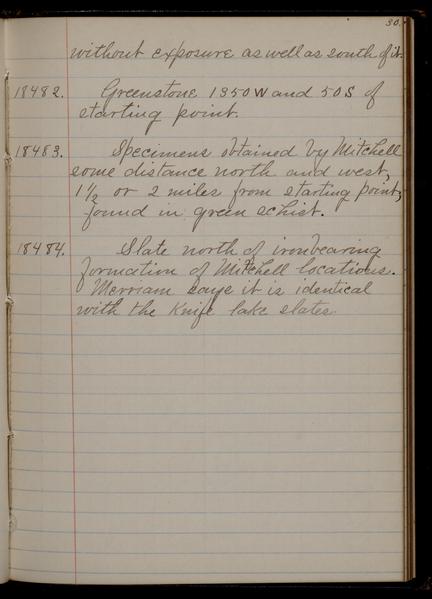 30.
without exposure as well as south of it.
18482. Greenstone 1350 W and 50 S of
starting point.
18483. Specimens obtained by Mitchell
some distance north and west,
1 1/2 or 2 miles from starting point,
found in green schist.
18484. Slate north of ironbearing
formation of Mitchell locations.
Merriam says it is identical
with the Knife lake slates.